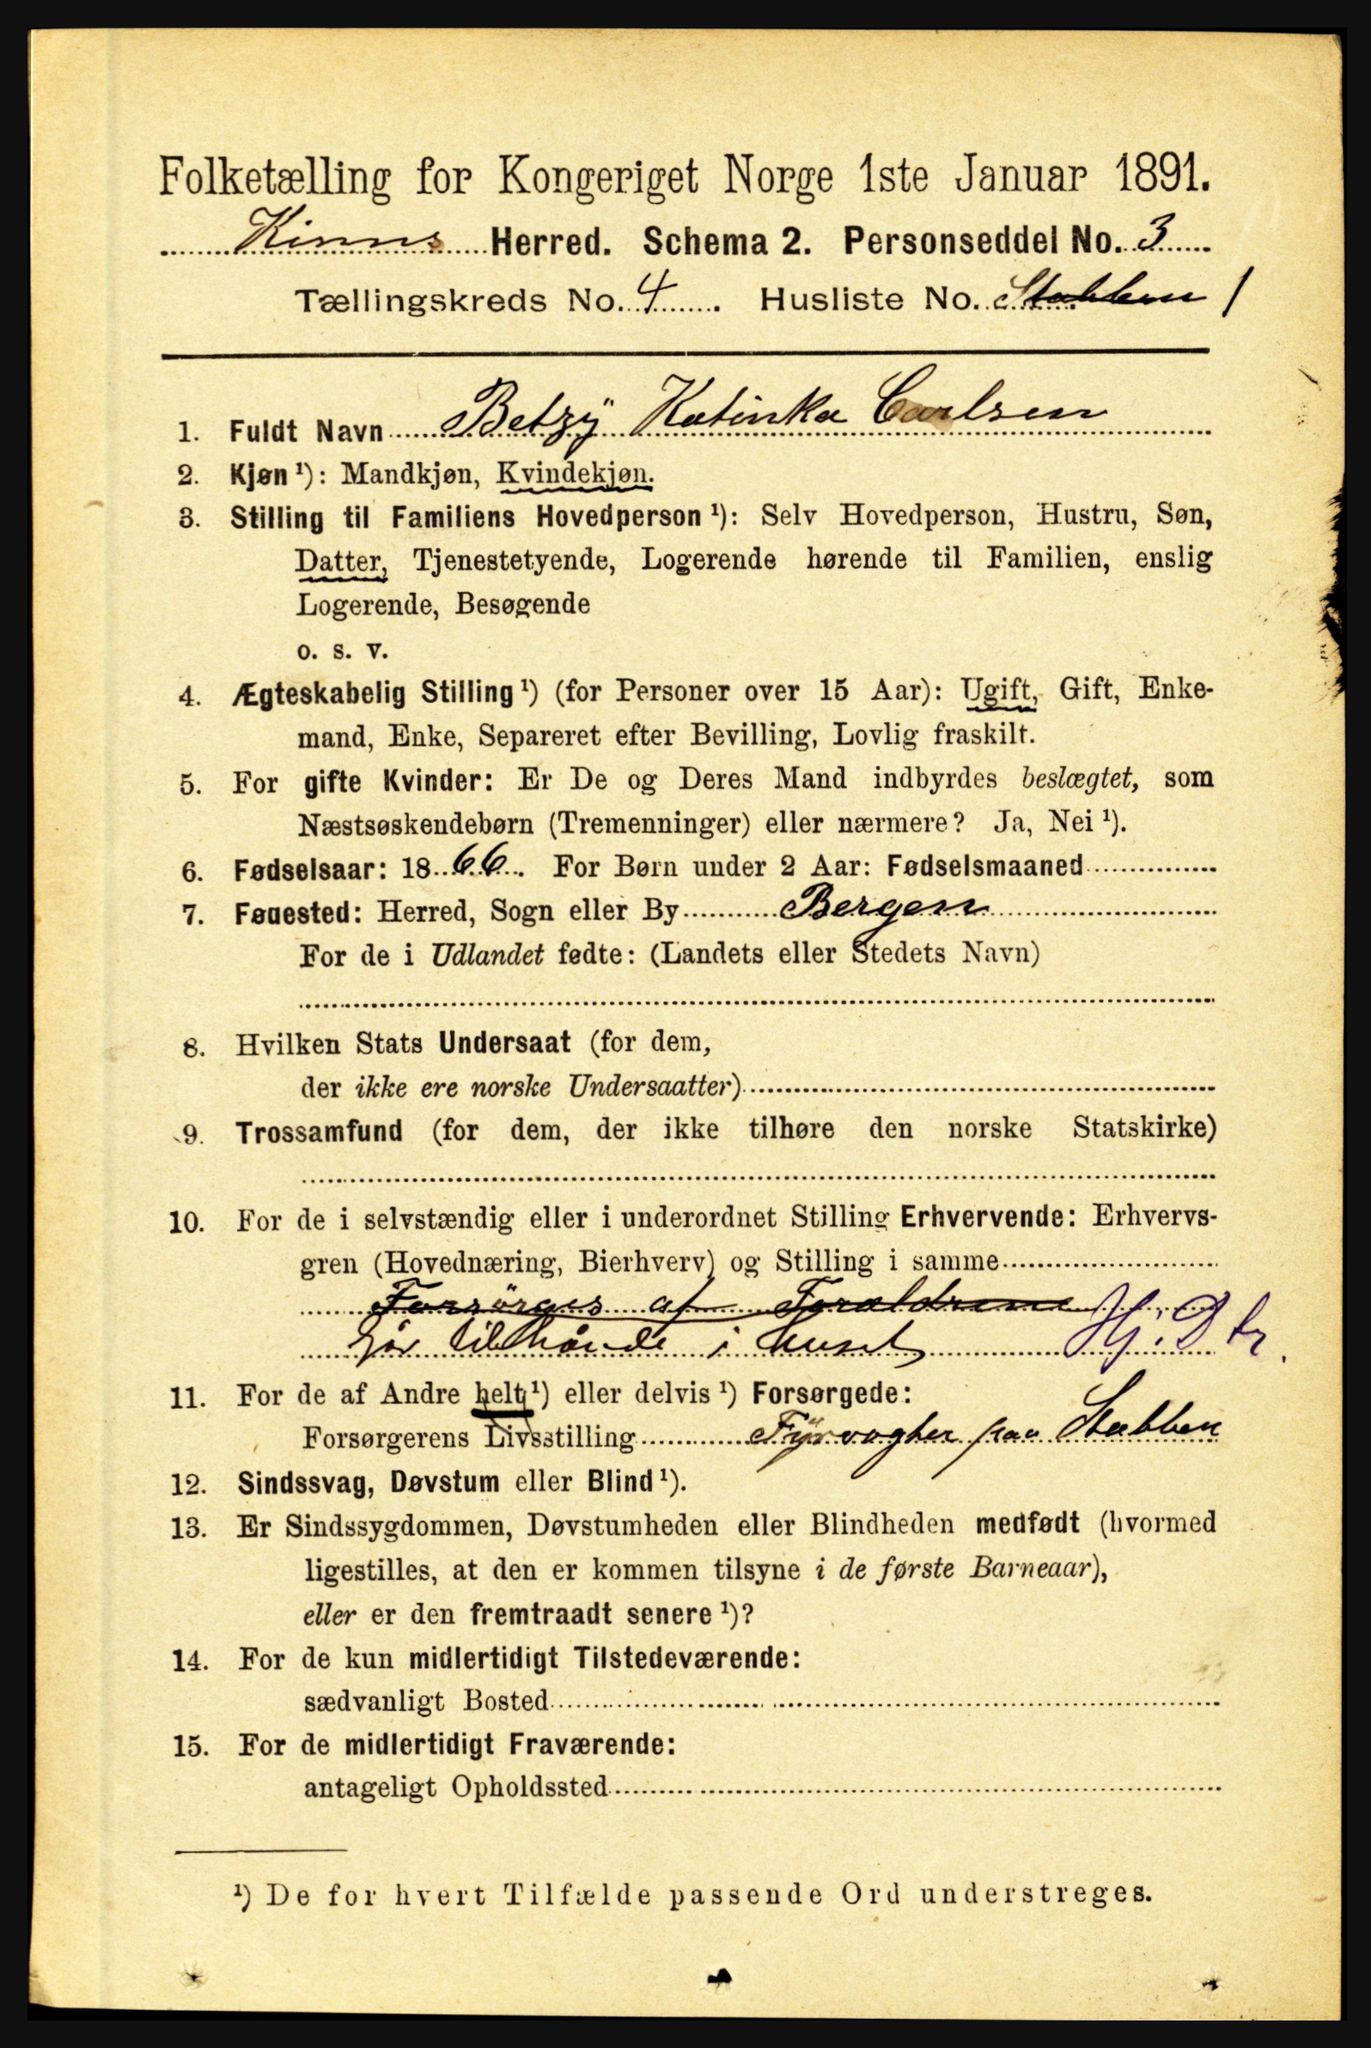 Folketælling for Kongeriget Norge 1ste Januar 1891.
Kinns Herred. Schema 2. Personseddel No. 3
Tællingskreds No. 4. Husliste No. Stabben 1
1. Fuldt Navn Betzy Katinka Carlsen
2. Kjøn ¹): Mandkjøn, Kvindekjøn.
3. Stilling til Familiens Hovedperson ¹): Selv Hovedperson, Hustru, Søn,
Datter, Tjenestetyende, Logerende hørende til Familien, enslig
Logerende, Besøgende
o. s. v.
4. Ægteskabelig Stilling ¹) (for Personer over 15 Aar): Ugift, Gift, Enke-
mand, Enke, Separeret efter Bevilling, Lovlig fraskilt.
5. For gifte Kvinder: Er De og Deres Mand indbyrdes beslægtet, som
Næstsøskendebørn (Tremenninger) eller nærmere? Ja, Nei ¹).
6. Fødselsaar: 1866. For Børn under 2 Aar: Fødselsmaaned
7. Føuested: Herred, Sogn eller By Bergen
For de i Udlandet fødte: (Landets eller Stedets Navn)
8. Hvilken Stats Undersaat (for dem,
der ikke ere norske Undersaatter)
9. Trossamfund (for dem, der ikke tilhøre den norske Statskirke)
10. For de i selvstændig eller i underordnet Stilling Erhvervende: Erhvervs-
gren (Hovednæring, Bierhverv) og Stilling i samme
Forsörges af Forældrene
gör tilhånde i huset Hj. Dtr.
11. For de af Andre helt ¹) eller delvis ¹) Forsørgede:
Forsørgerens Livsstilling Fyrvogter paa Stabben
12. Sindssvag, Døvstum eller Blind ¹).
13. Er Sindssygdommen, Døvstumheden eller Blindheden medfødt (hvormed
ligestilles, at den er kommen tilsyne i de første Barneaar),
eller er den fremtraadt senere ¹)?
14. For de kun midlertidigt Tilstedeværende:
sædvanligt Bosted
15. For de midlertidigt Fraværende:
antageligt Opholdssted
¹) De for hvert Tilfælde passende Ord understreges.